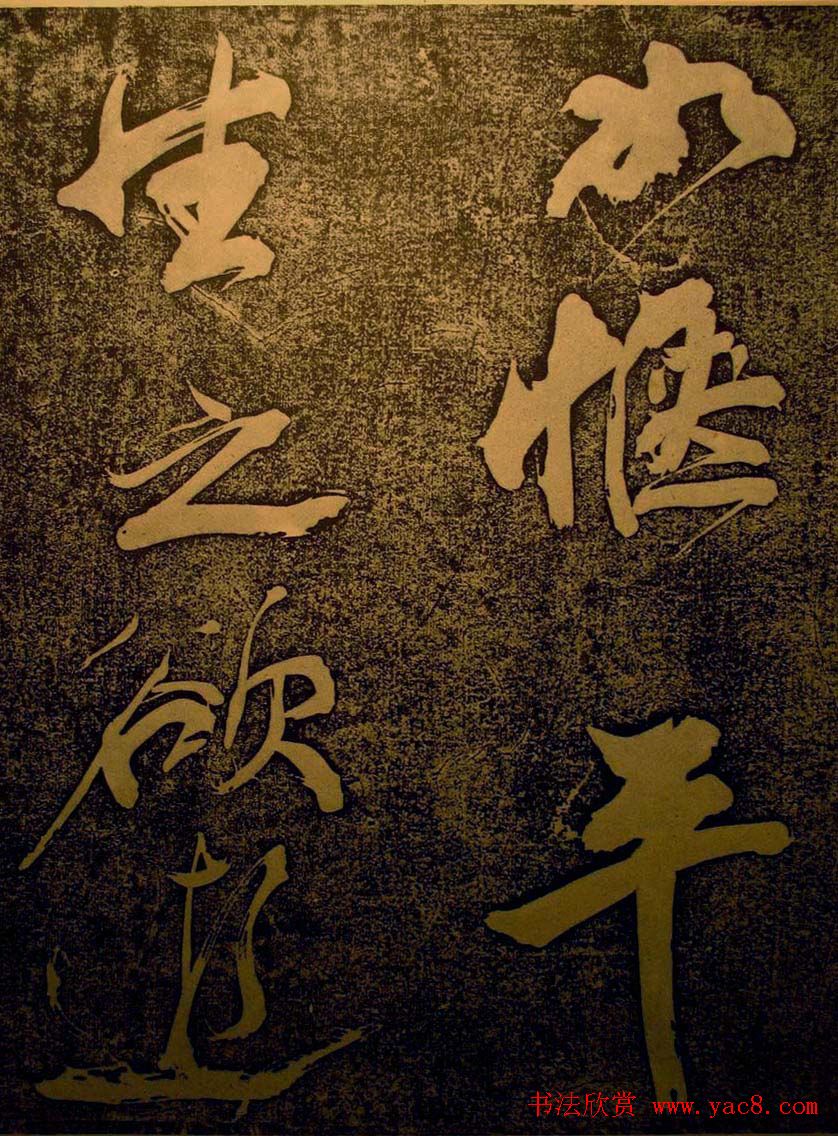 如愜平
生之欲遊
书法欣赏 www.yac8.com